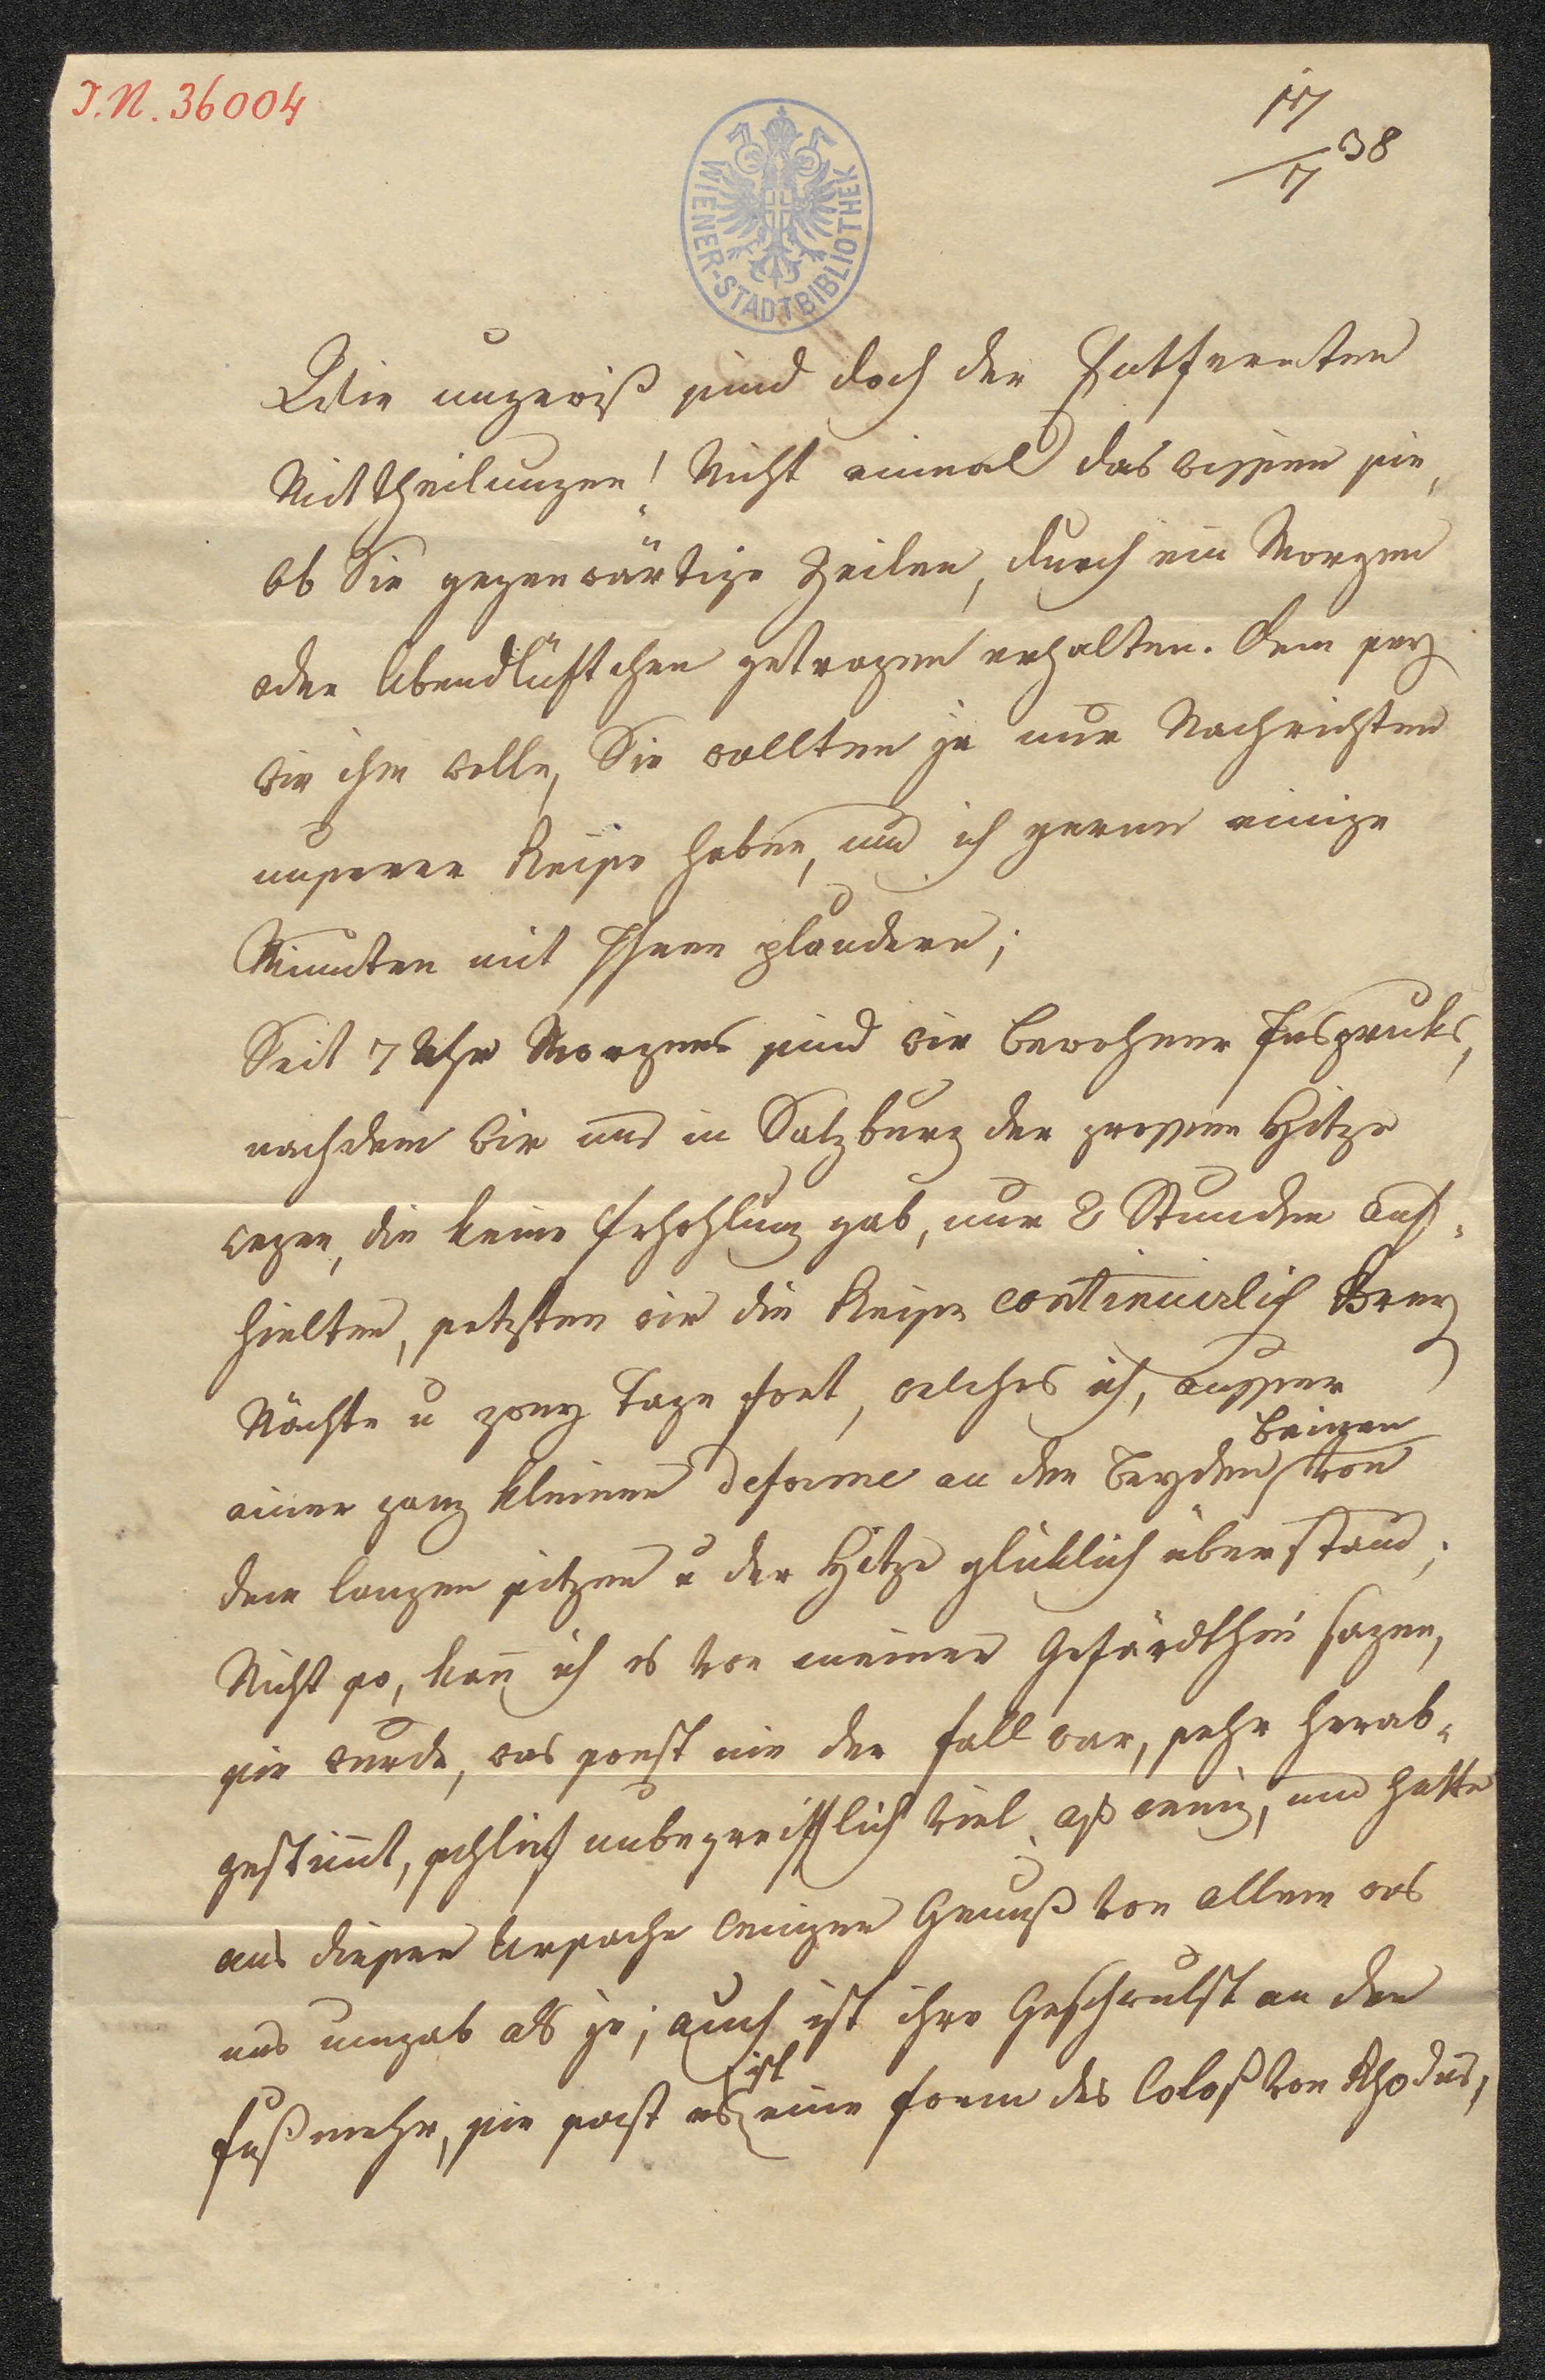 I.N. 36004
17/7 38
WIENER-STADTBIBLIOTHEK
Wie ungewiß sind doch der Entfernten
Mittheilungen! Nicht einmal das wissen sie,
ob Sie gegenwärtige Zeilen, durch ein Morgen
oder Abendlüftchen getragen erhalten. Dem sey
wie ihm wolle, Sie wollten ja nur Nachrichten
unserer Reise haben, und ich gerne einige
Minuten mit Ihnen plaudern;
Seit 7 Uhr Morgens sind wir Bewohner Inspruks,
nachdem wir uns in Salzburg der grossen Hitze
wegen, die keine Erhohlung gab, nur 8 Stunden auf-
hielten, setzten wir die Reise continuirlich Drey
Nächte u zwey Tage fort, welches ich, ausser
einer ganz kleinen deforme an den beyden Beinen von
dem langen sitzen u der Hitze glüklich überstand;
Nicht so, kann ich es von meiner Gefärdthin sagen,
sie wurde, was sonst nie der Fall war, sehr herab-
gestimmt, schlief unbegreifflich viel, aß wenig, und hatte
aus dieser Ursache weniger Genuß von allem was
uns umgab als je; auch ist ihre Geschwulst an den
Fuß mehr, sie sagt es ist eine Form des Coloß von Rhodus,